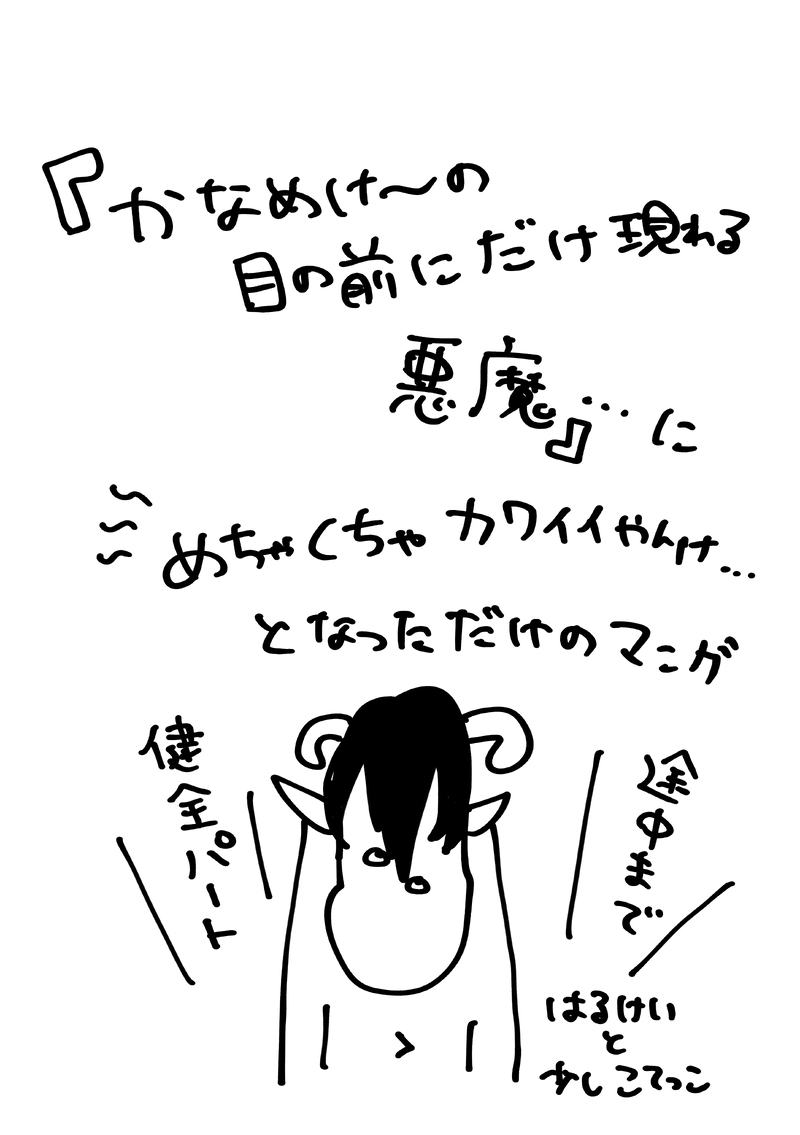 『かなめけ〜の
目の前にだけ現れる
悪魔』…に
めちゃくちゃカワイイやんけ…
となっただけのマンガ
途中まで
健全パート
はるけい
と
少しこてっこ